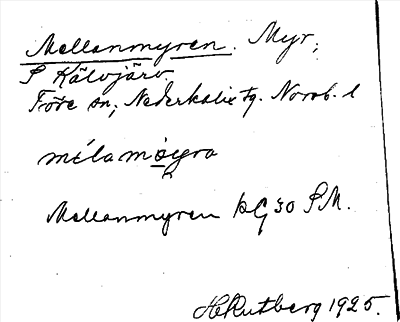 Mellanmyren. Myr;
S Kälvjärv.
Töre sn; Nederkalix tg. Norrb. l
Mellanmyren KG 30 S.M.
H. Rutberg 1925.